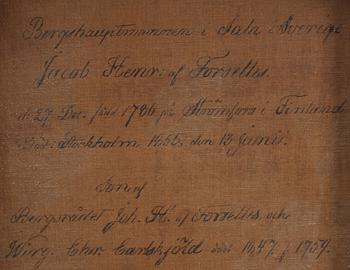 Bergshauptmannen i Sala i Sverege
Jacob Henr: af Forselles.
d. 27 Dec. född 1786 på Strömfors i Finland
Död: Stockholm 1855. den 13 Junii.
Son af
Bergsrådet Joh. H. af Forselles, och
Chr. Carlskjöld död 1847. f. 1759.